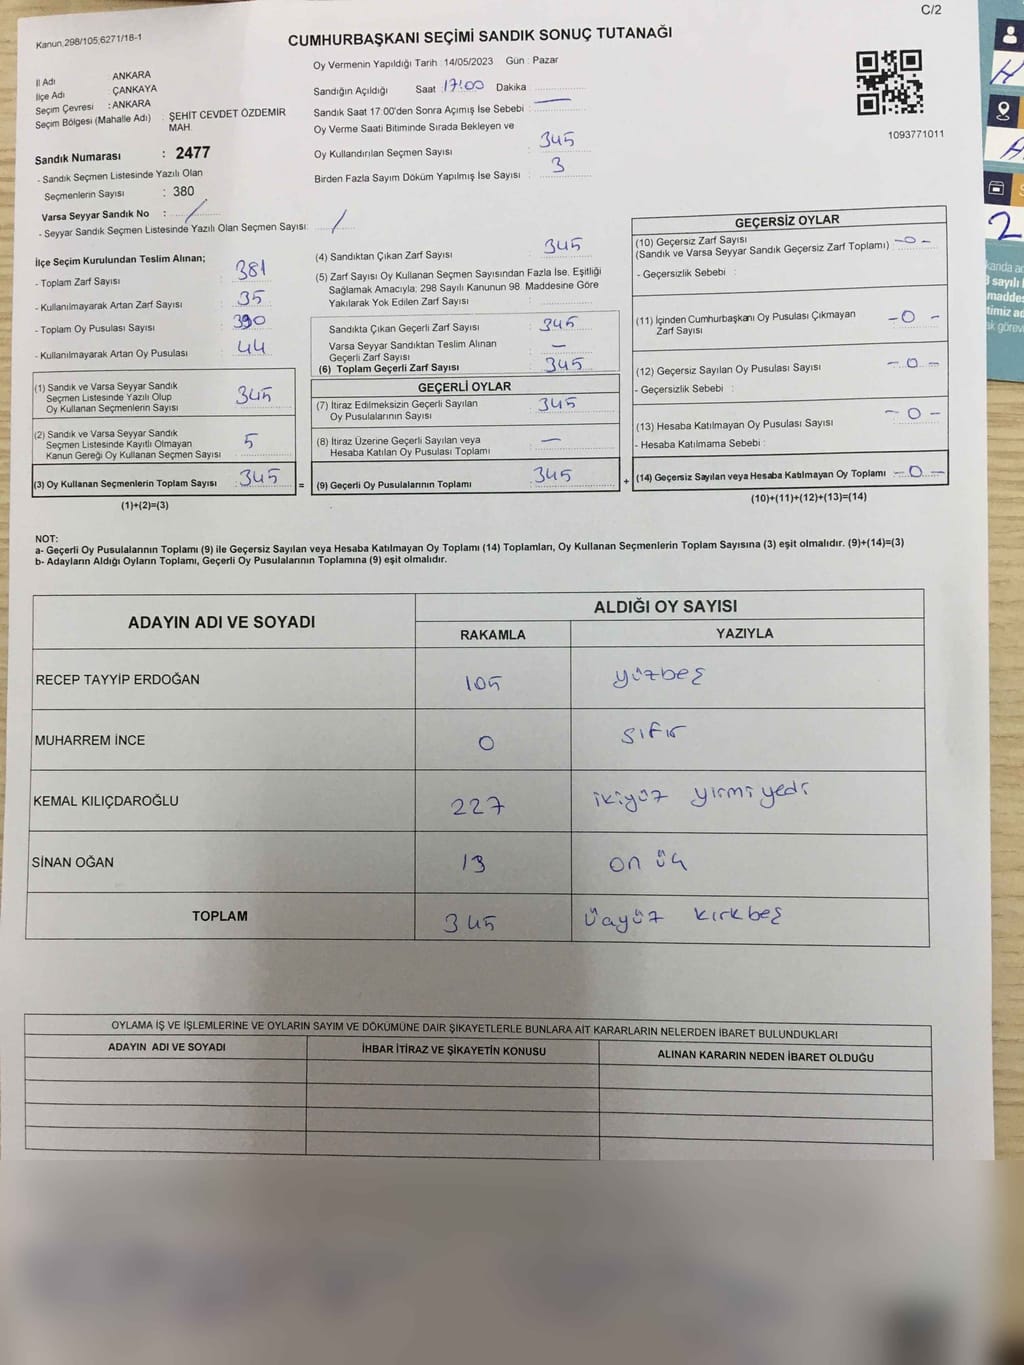 C/2
Kanun,298/105,6271/18-1
CUMHURBAŞKANI SEÇİMİ SANDIK SONUÇ TUTANAĞI
İl Adı : ANKARA
İlçe Adı : ÇANKAYA
Seçim Çevresi : ANKARA
Seçim Bölgesi (Mahalle Adı) : ŞEHİT CEVDET ÖZDEMİR
MAH.
Sandık Numarası : 2477
- Sandık Seçmen Listesinde Yazılı Olan
Seçmenlerin Sayısı : 380
Varsa Seyyar Sandık No : /
- Seyyar Sandık Seçmen Listesinde Yazılı Olan Seçmen Sayısı: /
Oy Vermenin Yapıldığı Tarih : 14/05/2023 Gün : Pazar
Sandığın Açıldığı Saat : 17:00 Dakika
Sandık Saat 17:00'den Sonra Açımış İse Sebebi : —
Oy Verme Saati Bitiminde Sırada Bekleyen ve
Oy Kullandırılan Seçmen Sayısı : 345
Birden Fazla Sayım Döküm Yapılmış İse Sayısı : 3
1093771011
İlçe Seçim Kurulundan Teslim Alınan;
- Toplam Zarf Sayısı : 381
- Kullanılmayarak Artan Zarf Sayısı : 35
- Toplam Oy Pusulası Sayısı : 390
- Kullanılmayarak Artan Oy Pusulası : 44
(1) Sandık ve Varsa Seyyar Sandık
Seçmen Listesinde Yazılı Olup
Oy Kullanan Seçmenlerin Sayısı : 345
(2) Sandık ve Varsa Seyyar Sandık
Seçmen Listesinde Kayıtlı Olmayan
Kanun Gereği Oy Kullanan Seçmen Sayısı : 5
(3) Oy Kullanan Seçmenlerin Toplam Sayısı : 345 =
(1)+(2)=(3)
(4) Sandıktan Çıkan Zarf Sayısı : 345
(5) Zarf Sayısı Oy Kullanan Seçmen Sayısından Fazla İse, Eşitliği
Sağlamak Amacıyla; 298 Sayılı Kanunun 98. Maddesine Göre
Yakılarak Yok Edilen Zarf Sayısı :
Sandıkta Çıkan Geçerli Zarf Sayısı : 345
Varsa Seyyar Sandıktan Teslim Alınan
Geçerli Zarf Sayısı : —
(6) Toplam Geçerli Zarf Sayısı : 345
GEÇERLİ OYLAR
(7) İtiraz Edilmeksizin Geçerli Sayılan
Oy Pusulalarının Sayısı : 345
(8) İtiraz Üzerine Geçerli Sayılan veya
Hesaba Katılan Oy Pusulası Toplamı : —
(9) Geçerli Oy Pusulalarının Toplamı : 345 +
GEÇERSİZ OYLAR
(10) Geçersiz Zarf Sayısı
(Sandık ve Varsa Seyyar Sandık Geçersiz Zarf Toplamı) : -0-
- Geçersizlik Sebebi :
(11) İçinden Cumhurbaşkanı Oy Pusulası Çıkmayan
Zarf Sayısı : -0-
(12) Geçersiz Sayılan Oy Pusulası Sayısı : -0-
- Geçersizlik Sebebi :
(13) Hesaba Katılmayan Oy Pusulası Sayısı : -0-
- Hesaba Katılmama Sebebi :
(14) Geçersiz Sayılan veya Hesaba Katılmayan Oy Toplamı : -0-
(10)+(11)+(12)+(13)=(14)
NOT:
a- Geçerli Oy Pusulalarının Toplamı (9) ile Geçersiz Sayılan veya Hesaba Katılmayan Oy Toplamı (14) Toplamları, Oy Kullanan Seçmenlerin Toplam Sayısına (3) eşit olmalıdır. (9)+(14)=(3)
b- Adayların Aldığı Oyların Toplamı, Geçerli Oy Pusulalarının Toplamına (9) eşit olmalıdır.
ADAYIN ADI VE SOYADI ALDIĞI OY SAYISI
RAKAMLA YAZIYLA
RECEP TAYYİP ERDOĞAN 105 yüzbeş
MUHARREM İNCE 0 sıfır
KEMAL KILIÇDAROĞLU 227 ikiyüz yirmiyedi
SİNAN OĞAN 13 on üç
TOPLAM 345 üçyüz kırkbeş
OYLAMA İŞ VE İŞLEMLERİNE VE OYLARIN SAYIM VE DÖKÜMÜNE DAİR ŞİKAYETLERLE BUNLARA AİT KARARLARIN NELERDEN İBARET BULUNDUKLARI
ADAYIN ADI VE SOYADI İHBAR İTİRAZ VE ŞİKAYETİN KONUSU ALINAN KARARIN NEDEN İBARET OLDUĞU